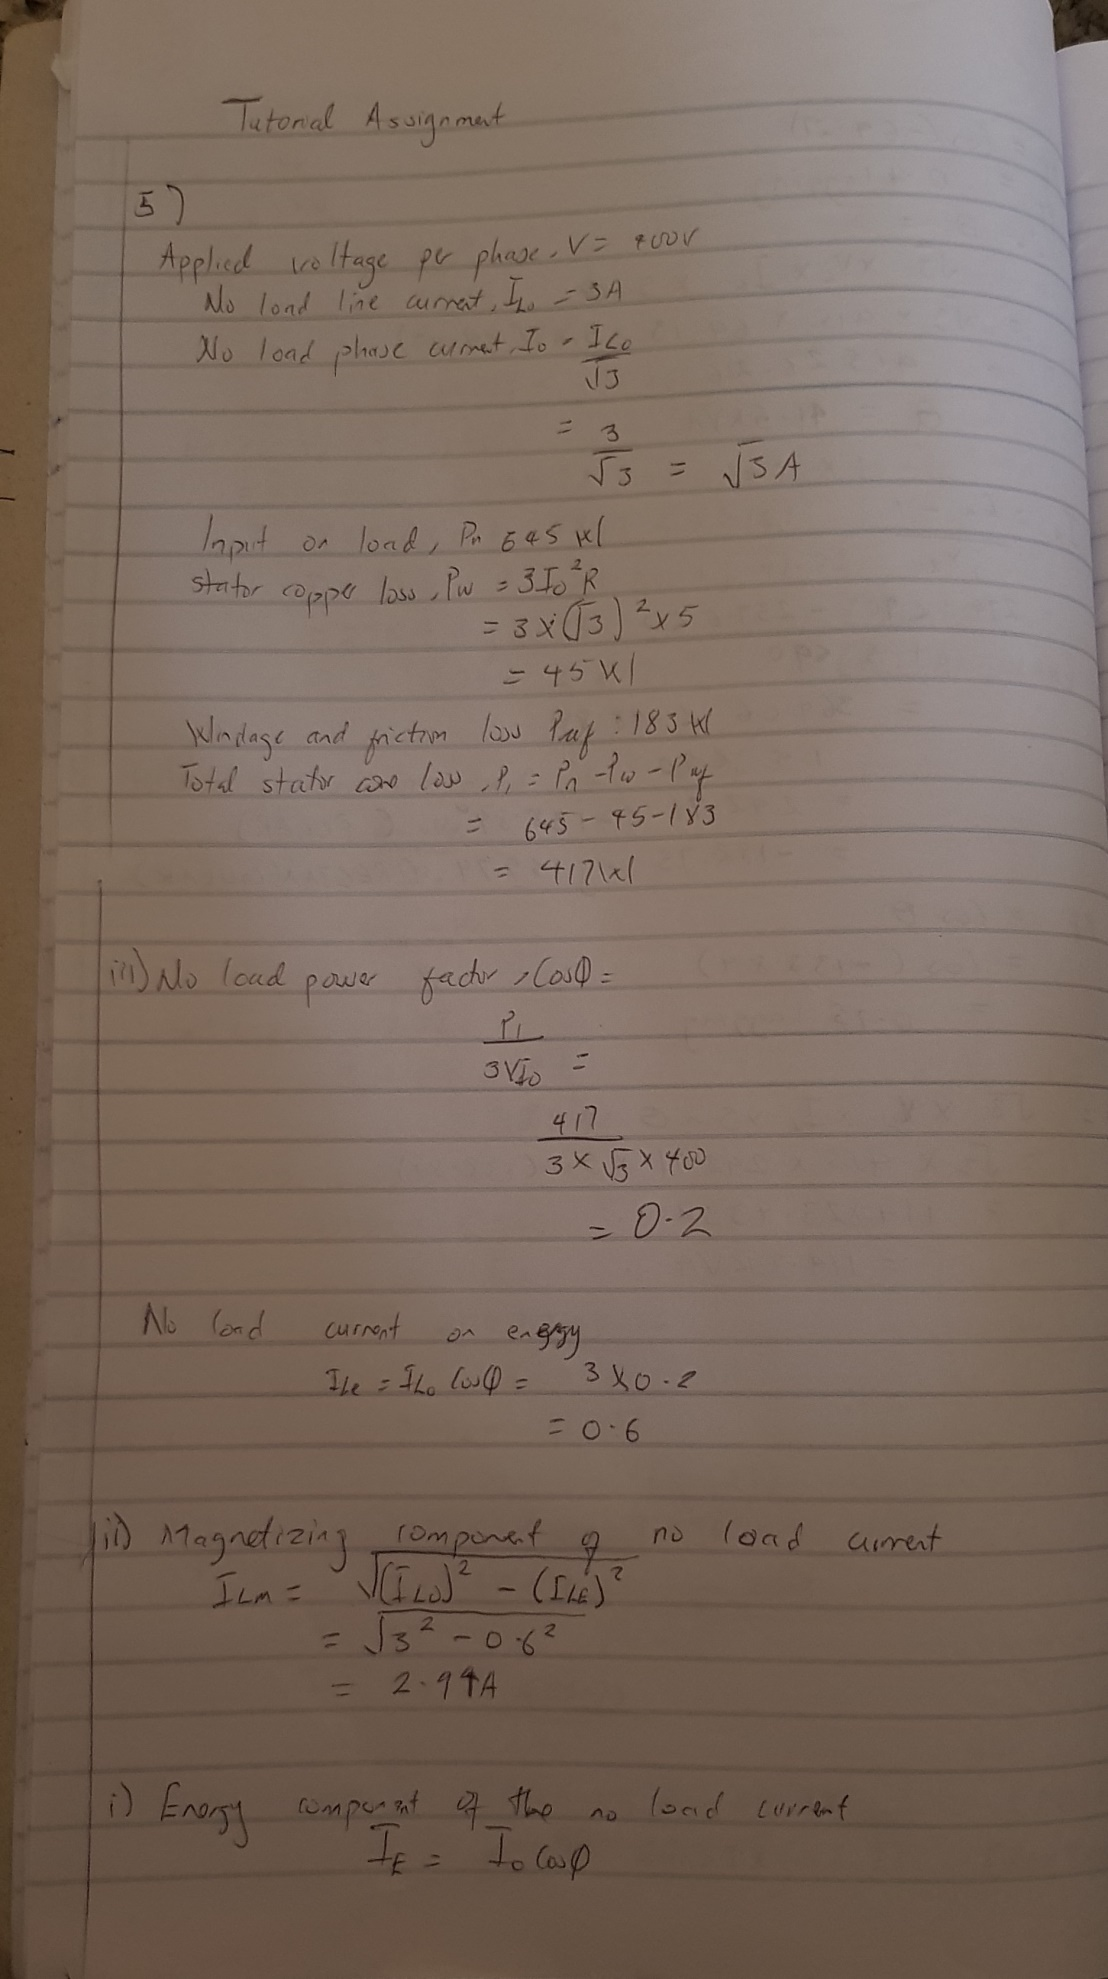 Tutorial Assignment
5)
Applied voltage per phase, V = 400V
No load line current, I_L0 = 3A
No load phase current, I0 = I_L0
√3
= 3
√3 = √3 A
Input on load, Pn 645 W
stator copper loss, Pw = 3I0²R
= 3 × (√3)² × 5
= 45 W
Windage and friction loss Pwf : 183 W
Total stator core loss, P1 = Pn - Pw - Pwf
= 645 - 45 - 183
= 417 W
iii) No load power factor, Cosφ =
P1
3VI0 =
417
3 × √3 × 400
= 0.2
No load current on energy
ILe = IL0 Cosφ = 3 × 0.2
= 0.6
ii) Magnetizing component of no load current
ILM = √(IL0)² - (ILE)²
= √3² - 0.6²
= 2.94A
i) Energy component of the no load current
IE = I0 Cosφ